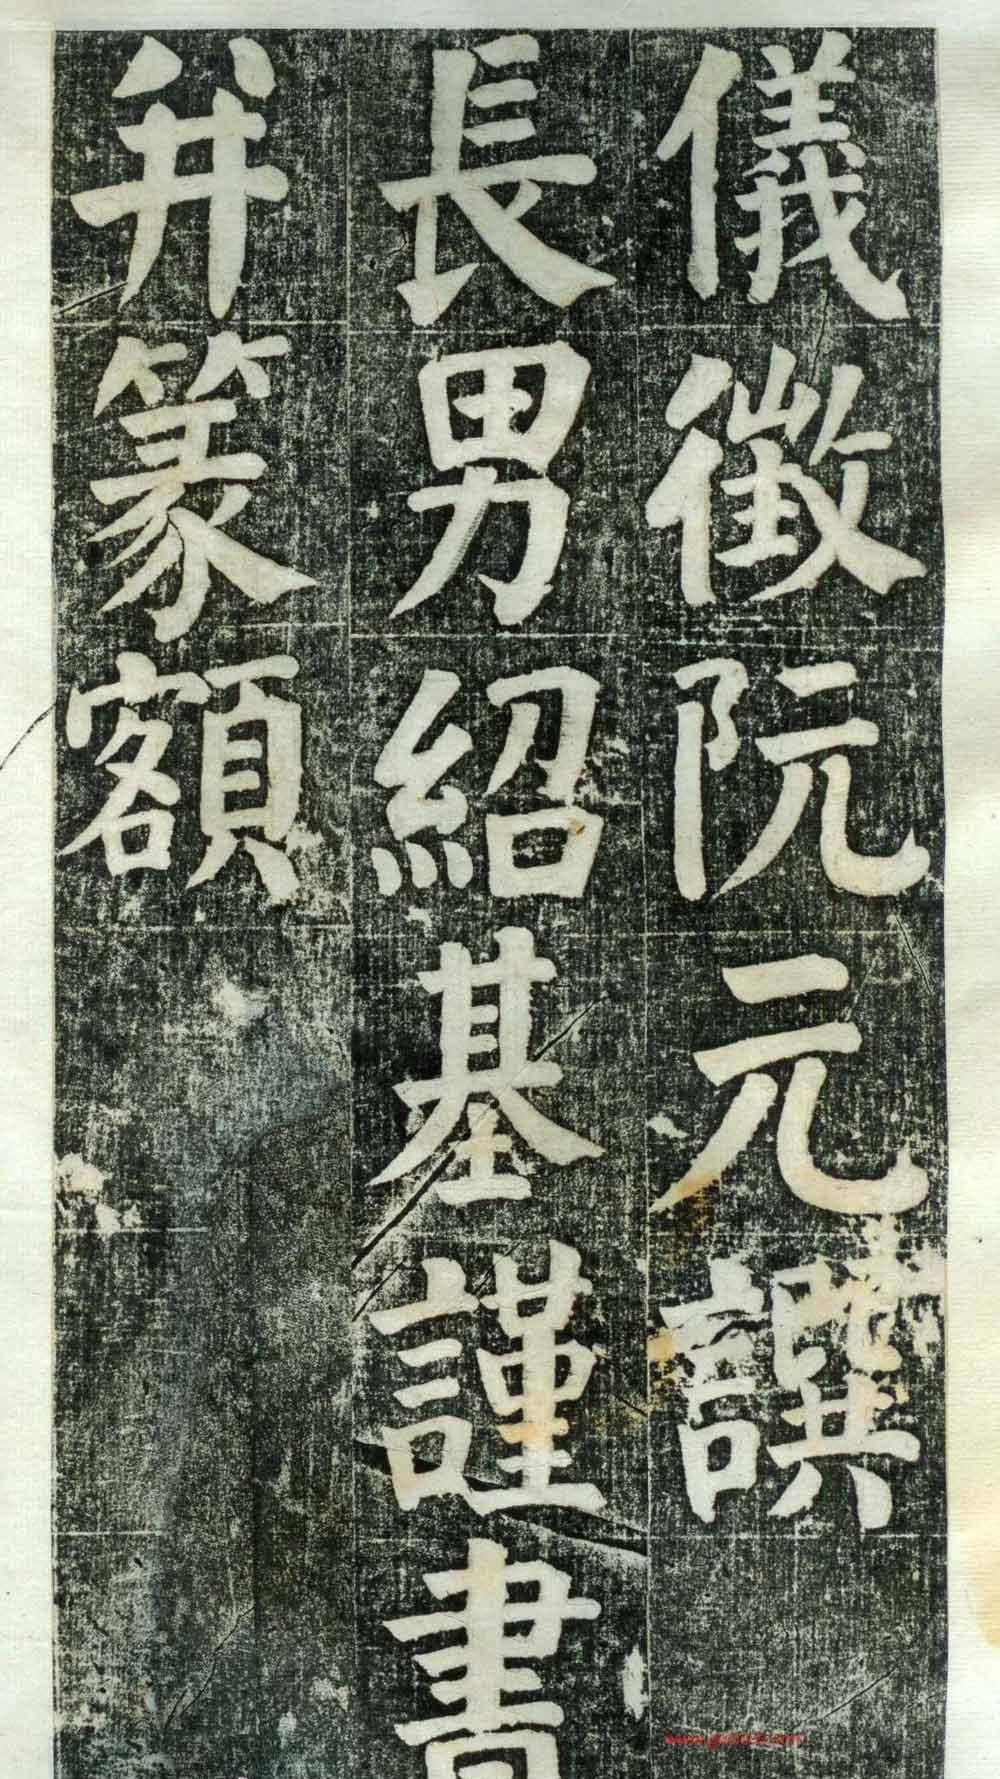 儀徵阮元譔
長男紹基謹書
幷篆額
www.gu5000.com